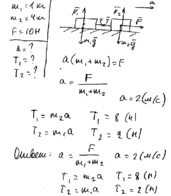 m₁ = 1 кг
m₂ = 4 кг
F = 10 Н
a = ?
T₁ = ?
T₂ = ?
a
F
a(m₁+m₂)=F
a = F/(m₁+m₂)
a = 2 (м/с)
T₁ = m₂a T₁ = 8 (Н)
T₂ = m₁a T₂ = 2 (Н)
Ответ: a = F/(m₁+m₂) a = 2 (м/с)
T₁ = m₂a T₁ = 8 (Н)
T₂ = m₁a T₂ = 2 (Н)